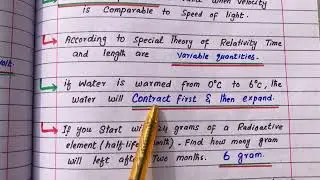 when velocity
is Comparable to Speed of light.
According to Special Theory of Relativity Time
and length are variable quantities.
if Water is warmed from 0°C to 6°C, the
water will Contract first & then expand.
If you Start 24 grams of a Radioactive
element (half life month). Find how many gram
will left After Two months. 6 gram.